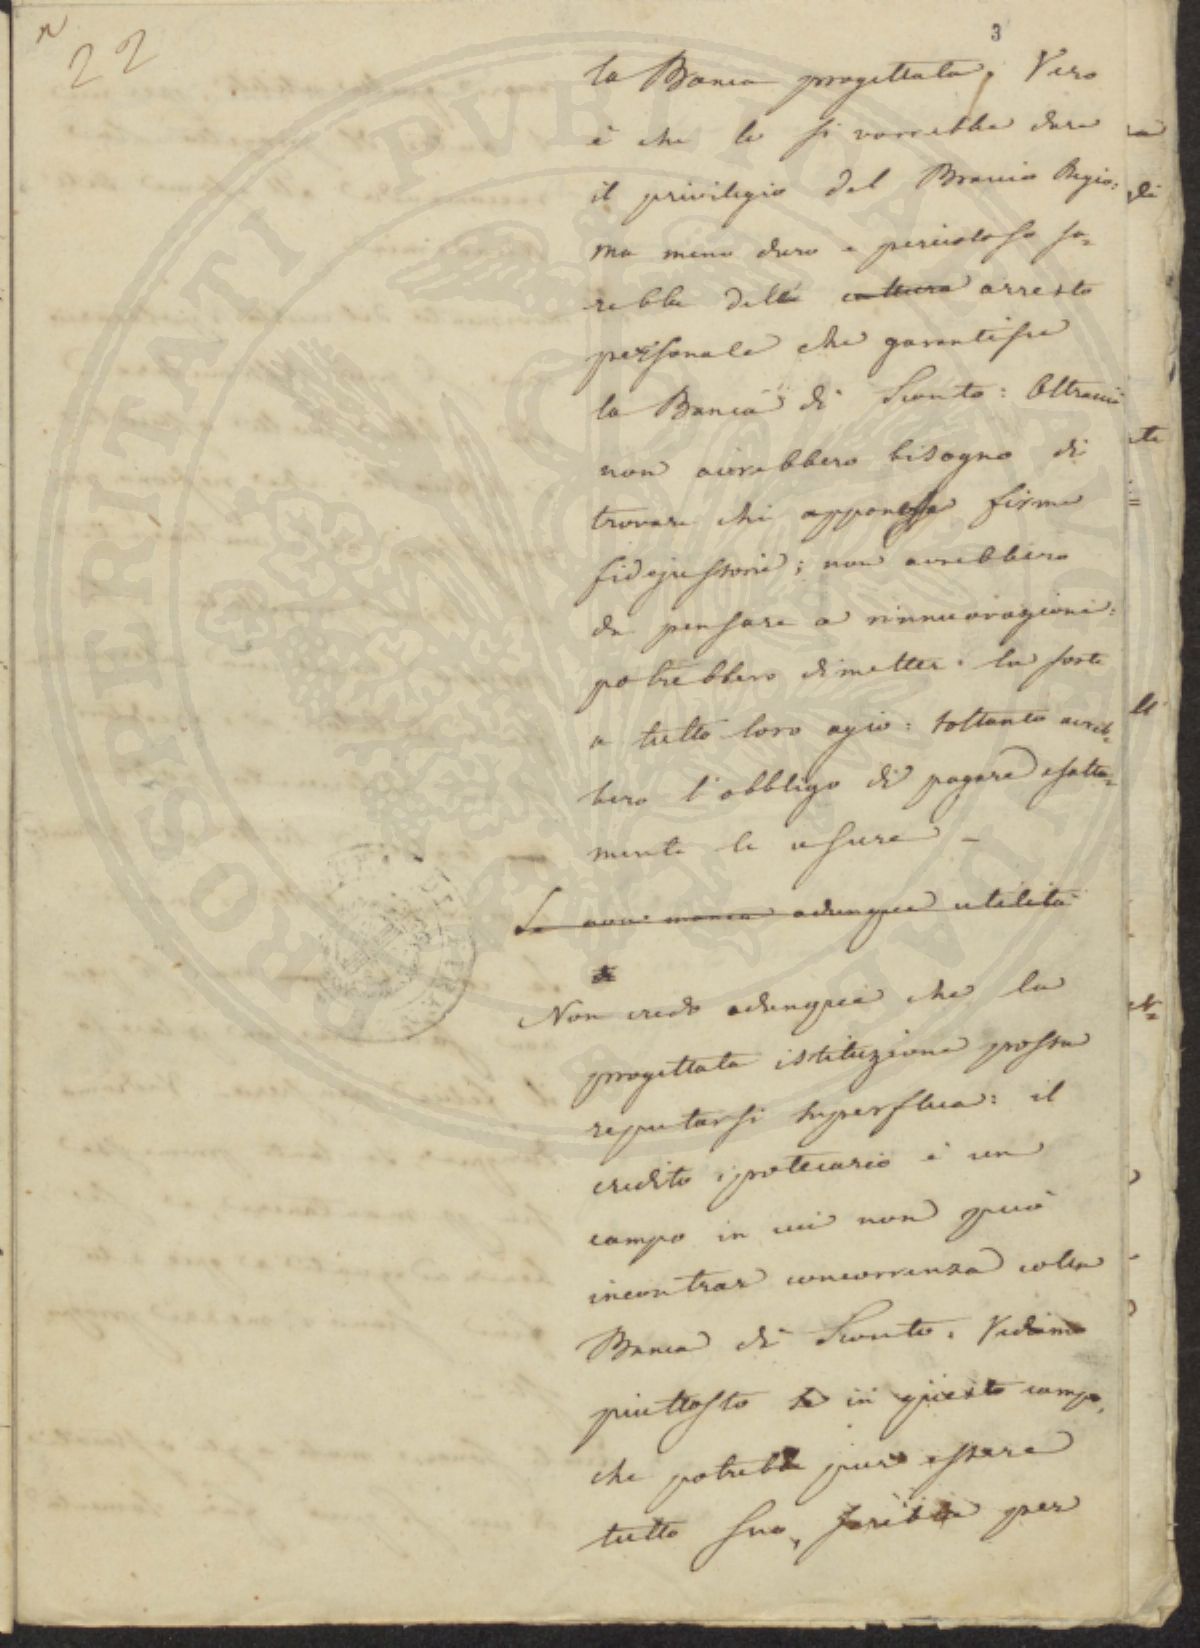 n 22
3
la Banca progettata. Vero
è che le si vorrebbe dare
il privilegio del Braccio Regio:
ma meno duro e pericoloso sa=
rebbe dell' cattura arresto
personale che garantisce
la Banca di Sconto: Oltracciò
non avrebbero bisogno di
trovare chi apponesse firme
fidejussorie; non avrebbero
da pensare a rinnuovazioni:
potrebbero dimetter la sorte
a tutto loro agio: soltanto avreb=
bero l'obbligo di pagare esatta=
mente le usure –
Le non manca adunque utilità
di
Non credo adunque che la
progettata istituzione possa
reputarsi superflua: il
credito ipotecario è un
campo in cui non può
incontrar concorrenza colla
Banca di Sconto. Vediamo
piuttosto se in questo campo,
che potrebbe pur essere
tutto suo, sarebbe per